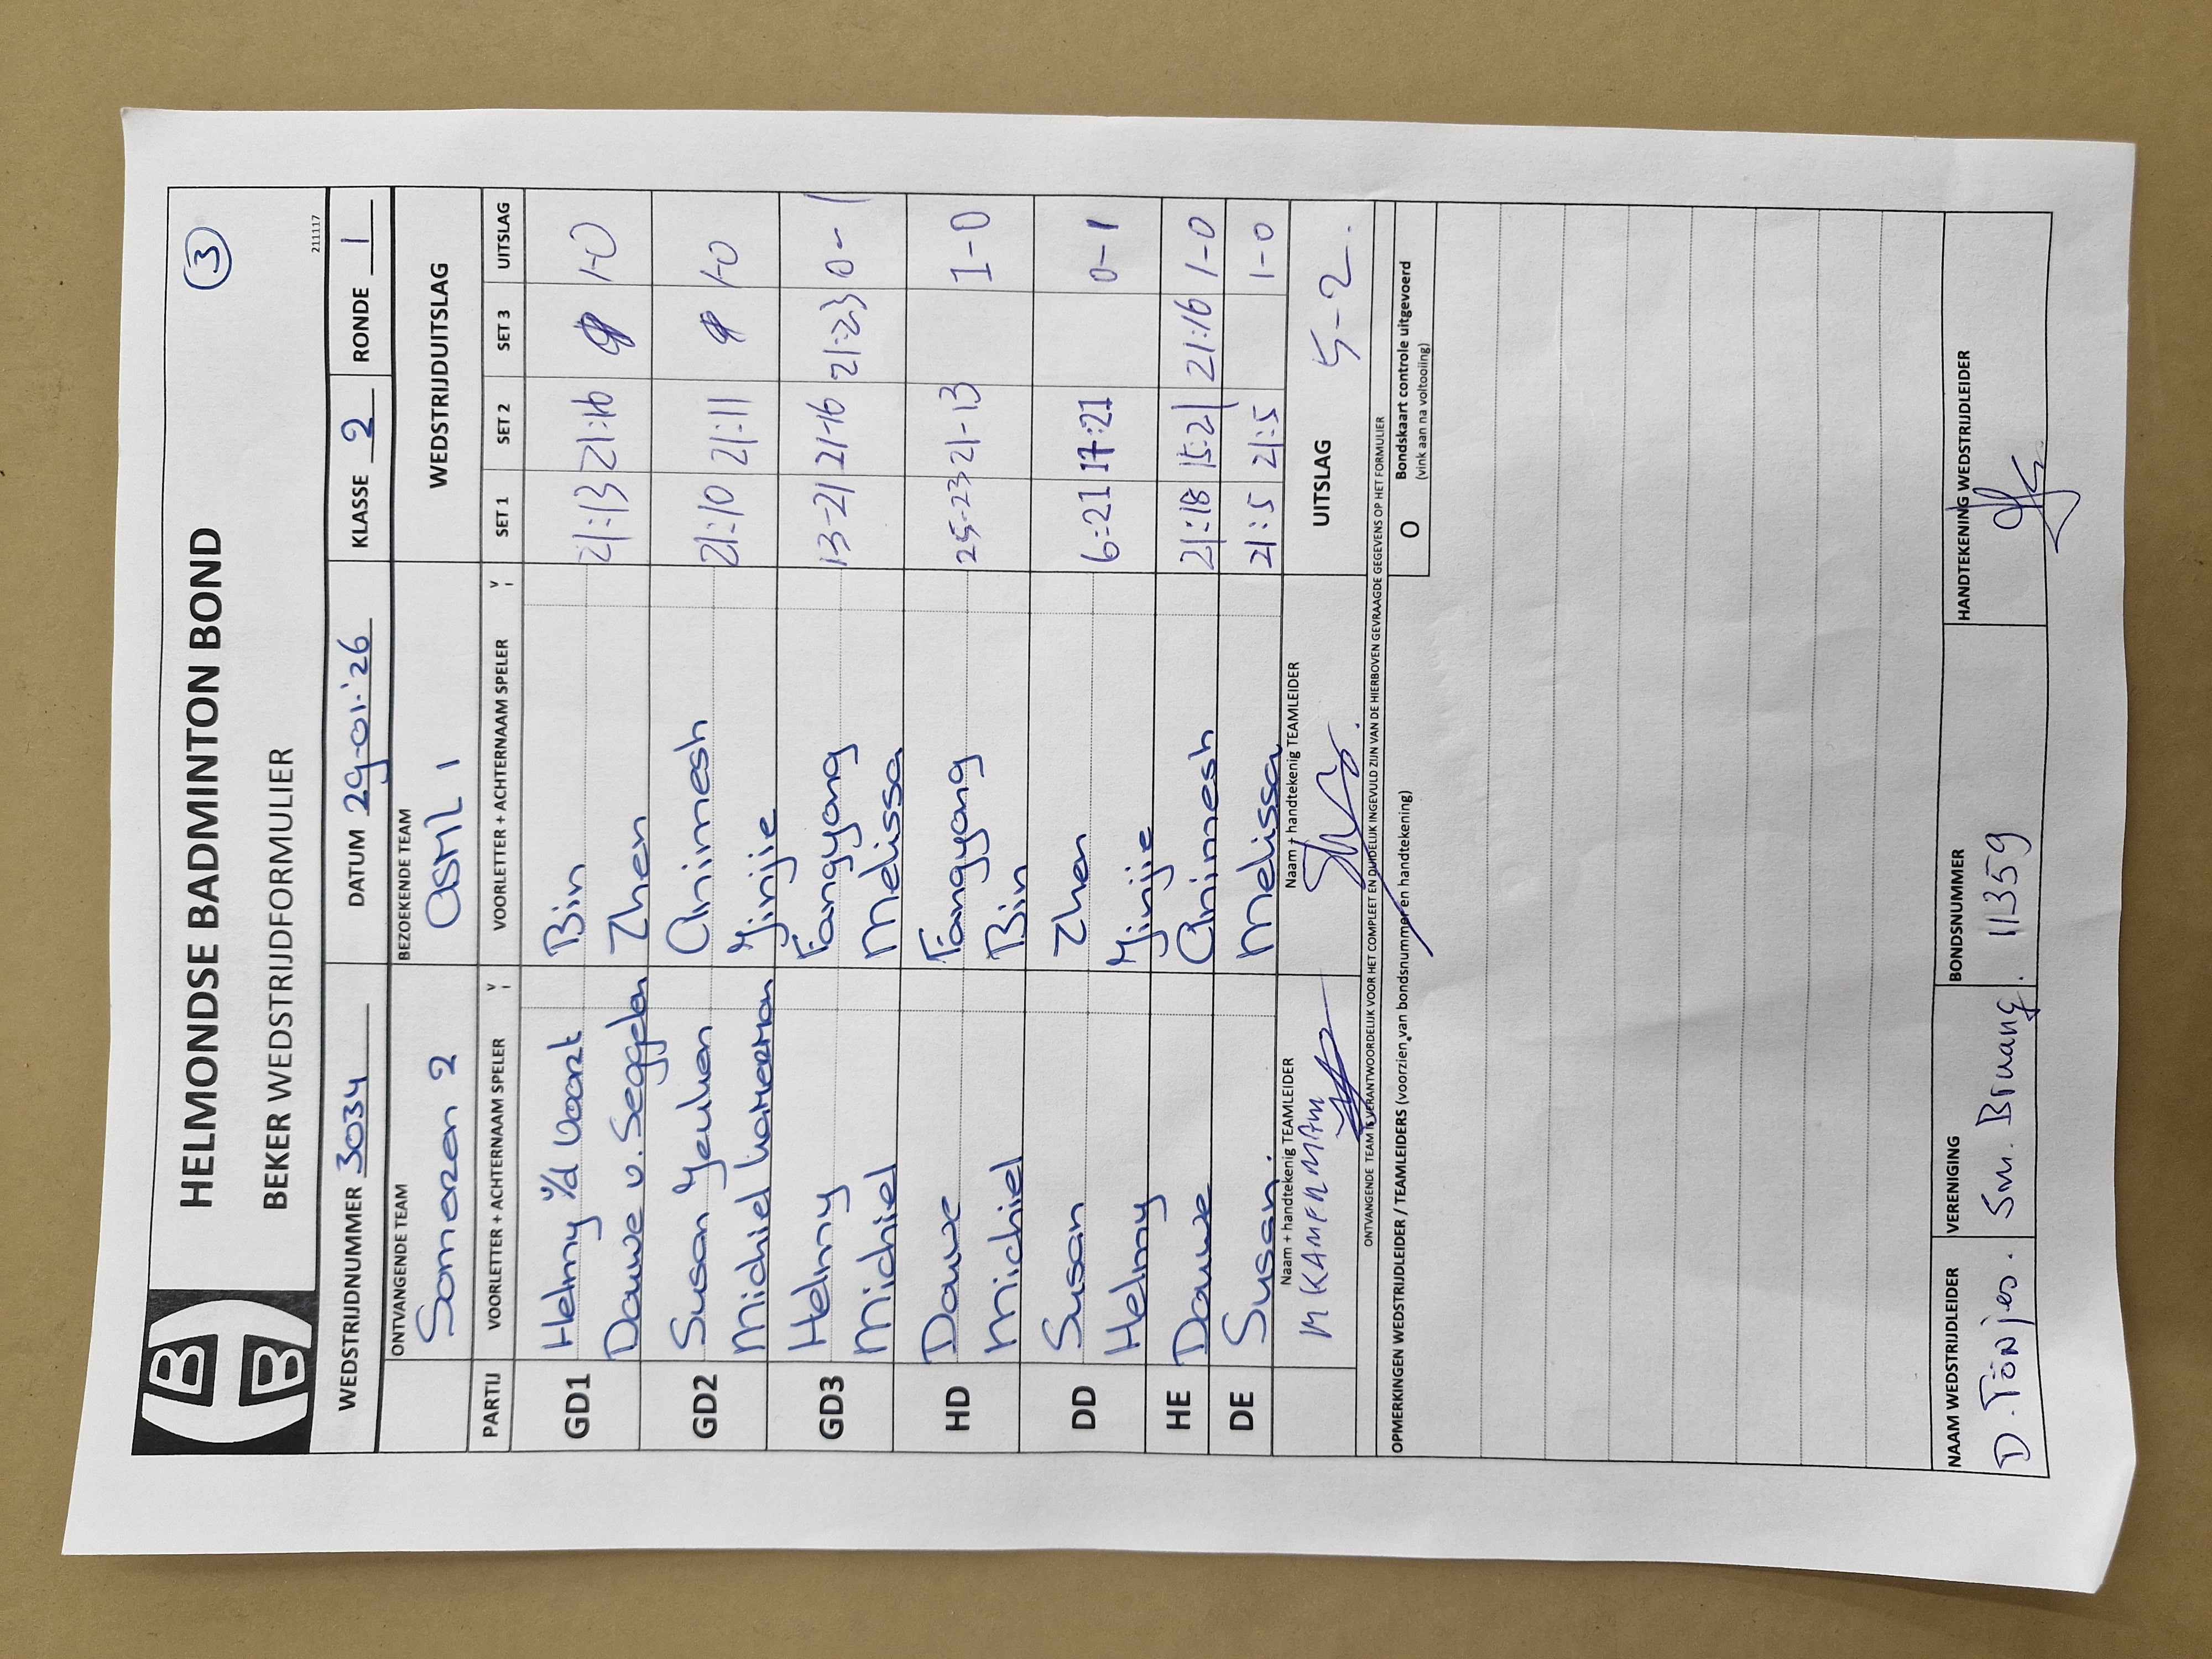 HELMONDSE BADMINTON BOND
3
BEKER WEDSTRIJDFORMULIER
211117
WEDSTRIJDNUMMER 3034 DATUM 29-01-'26 KLASSE 2 RONDE 1
ONTVANGENDE TEAM BEZOEKENDE TEAM WEDSTRIJDUITSLAG
Someren 2 ASML 1
PARTIJ VOORLETTER + ACHTERNAAM SPELER V I VOORLETTER + ACHTERNAAM SPELER V I SET 1 SET 2 SET 3 UITSLAG
GD1 Helmy v/d Voort Bin 21:13 21:16 1-0
Douwe v. Seggelen Zhen
GD2 Susan Yeulven Animesh 21:10 21:11 1-0
Michiel Kamerman Yinjie
GD3 Helmy Fangyang 13-21 21-16 21:23 0-1
Michiel Melissa
HD Douwe Fangyang 25-23 21-13 1-0
Michiel Bin
DD Susan Zhen 6:21 17:21 0-1
Helmy Yinjie
HE Douwe Animesh 21:18 15:21 21:16 1-0
DE Susan. Melissa 21:5 21:5 1-0
Naam + handtekenig TEAMLEIDER Naam + handtekenig TEAMLEIDER UITSLAG 5-2.
M KAMERMAM
ONTVANGENDE TEAM IS VERANTWOORDELIJK VOOR HET COMPLEET EN DUIDELIJK INGEVULD ZIJN VAN DE HIERBOVEN GEVRAAGDE GEGEVENS OP HET FORMULIER
OPMERKINGEN WEDSTRIJDLEIDER / TEAMLEIDERS (voorzien van bondsnummer en handtekening) O Bondskaart controle uitgevoerd
(vink aan na voltooiing)
NAAM WEDSTRIJDLEIDER VERENIGING BONDSNUMMER HANDTEKENING WEDSTRIJDLEIDER
D. Tönjes. Sm. Bruang. 11359